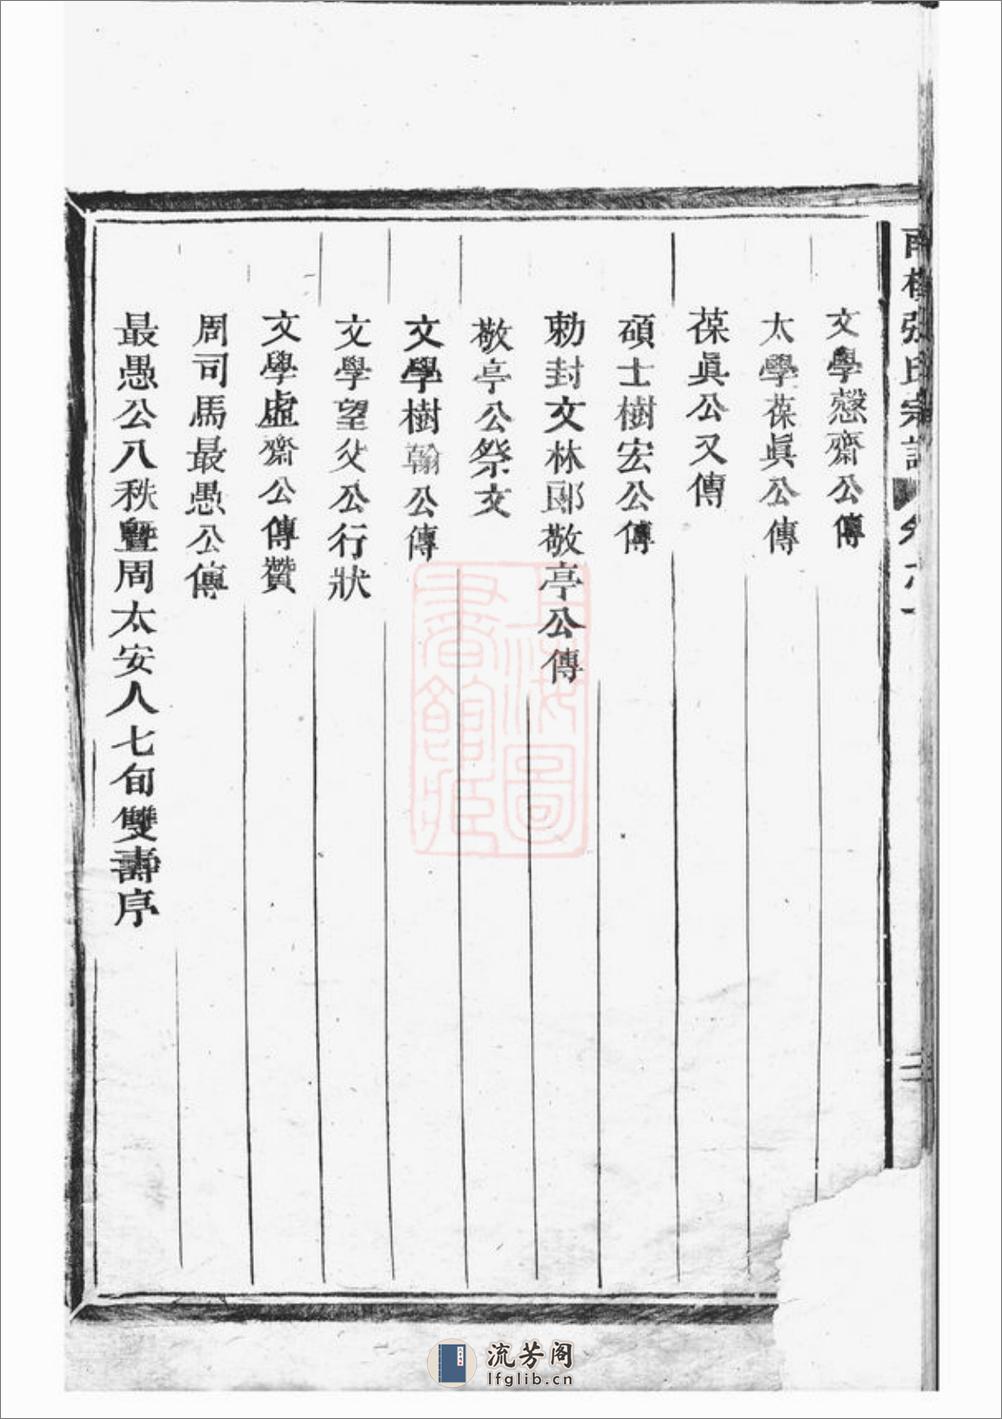 張氏宗譜
文學慤齋公傳
太學葆眞公傳
葆眞公又傳
碩士樹宏公傳
勅封文林郎敬亭公傳
敬亭公祭文
文學樹翰公傳
文學望父公行狀
文學虛齋公傳贊
周司馬最愚公傳
最愚公八秩曁周太安人七旬雙壽序
上海圖書館藏
流芳阁
lfglib.cn